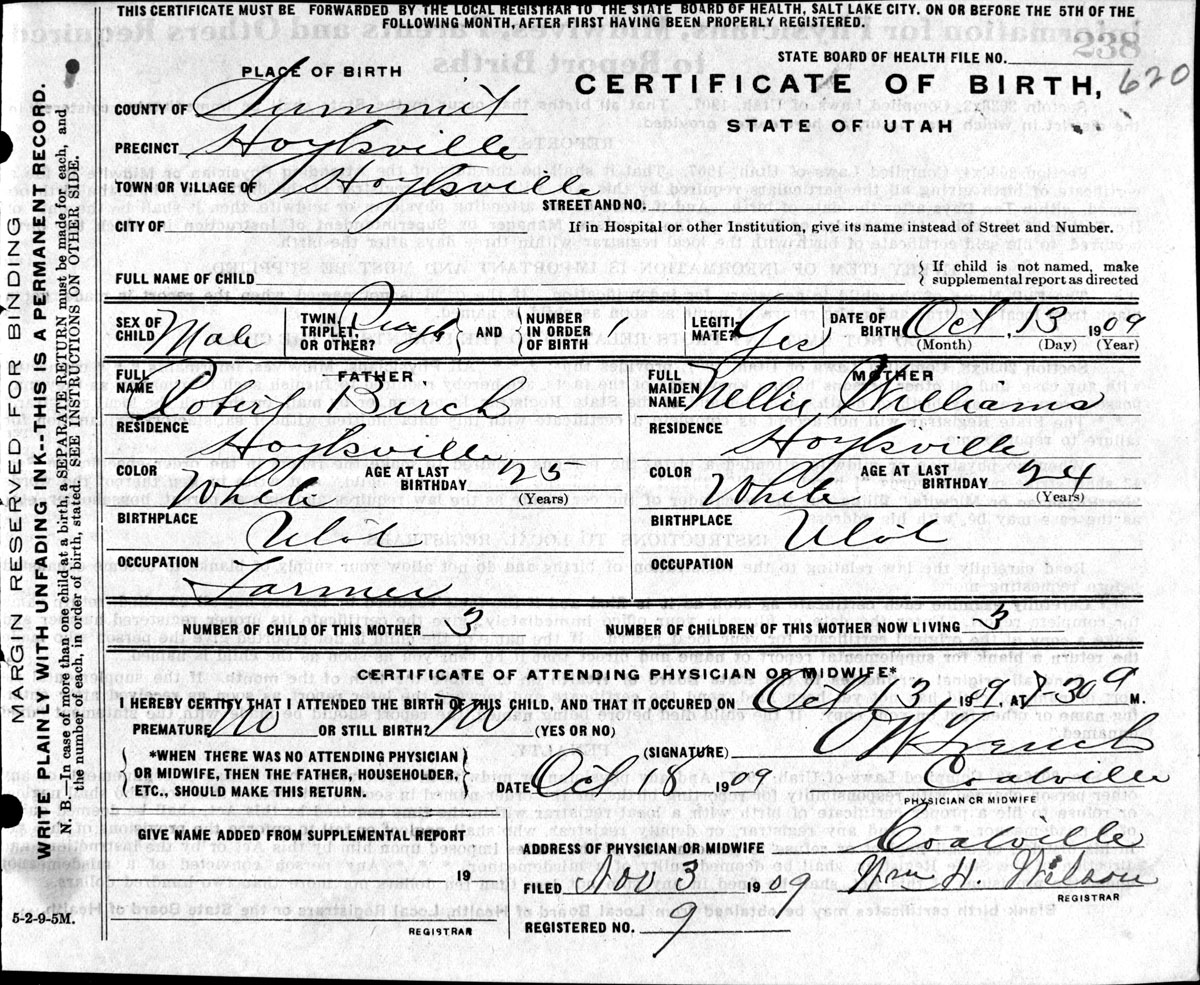 THIS CERTIFICATE MUST BE FORWARDED BY THE LOCAL REGISTRAR TO THE STATE BOARD OF HEALTH, SALT LAKE CITY. ON OR BEFORE THE 5TH OF THE
FOLLOWING MONTH, AFTER FIRST HAVING BEEN PROPERLY REGISTERED.
MARGIN RESERVED FOR BINDING
WRITE PLAINLY WITH UNFADING INK--THIS IS A PERMANENT RECORD.
N. B.—In case of more than one child at a birth, a SEPARATE RETURN must be made for each, and
the number of each, in order of birth, stated. SEE INSTRUCTIONS ON OTHER SIDE.
STATE BOARD OF HEALTH FILE NO.
620
PLACE OF BIRTH
CERTIFICATE OF BIRTH,
STATE OF UTAH
COUNTY OF Summit
PRECINCT Hoytsville
TOWN OR VILLAGE OF Hoytsville
STREET AND NO.
CITY OF
If in Hospital or other Institution, give its name instead of Street and Number.
FULL NAME OF CHILD
If child is not named, make
supplemental report as directed
SEX OF CHILD Male
TWIN, TRIPLET OR OTHER?
AND
NUMBER IN ORDER OF BIRTH
LEGITIMATE? Yes
BIRTH Oct 13 1909
(Month) (Day) (Year)
FATHER
FULL NAME Robert Birch
RESIDENCE Hoytsville
COLOR White
AGE AT LAST BIRTHDAY 25
(Years)
BIRTHPLACE Utah
OCCUPATION Farmer
MOTHER
FULL MAIDEN NAME Nellie Williams
RESIDENCE Hoytsville
COLOR White
AGE AT LAST BIRTHDAY 24
(Years)
BIRTHPLACE Utah
OCCUPATION
NUMBER OF CHILD OF THIS MOTHER 3
NUMBER OF CHILDREN OF THIS MOTHER NOW LIVING 3
CERTIFICATE OF ATTENDING PHYSICIAN OR MIDWIFE*
I HEREBY CERTIFY THAT I ATTENDED THE BIRTH OF THIS CHILD, AND THAT IT OCCURED ON Oct 13 1909, AT M.
PREMATURE No OR STILL BIRTH? No (YES OR NO)
*WHEN THERE WAS NO ATTENDING PHYSICIAN
OR MIDWIFE, THEN THE FATHER, HOUSEHOLDER,
ETC., SHOULD MAKE THIS RETURN.
(SIGNATURE)
DATE Oct 18 1909 Coalville
PHYSICIAN OR MIDWIFE
GIVE NAME ADDED FROM SUPPLEMENTAL REPORT
19
REGISTRAR
ADDRESS OF PHYSICIAN OR MIDWIFE Coalville
FILED Nov 3 1909 Wm H. Wilson
REGISTRAR
REGISTERED NO. 9
5-2-9-5M.